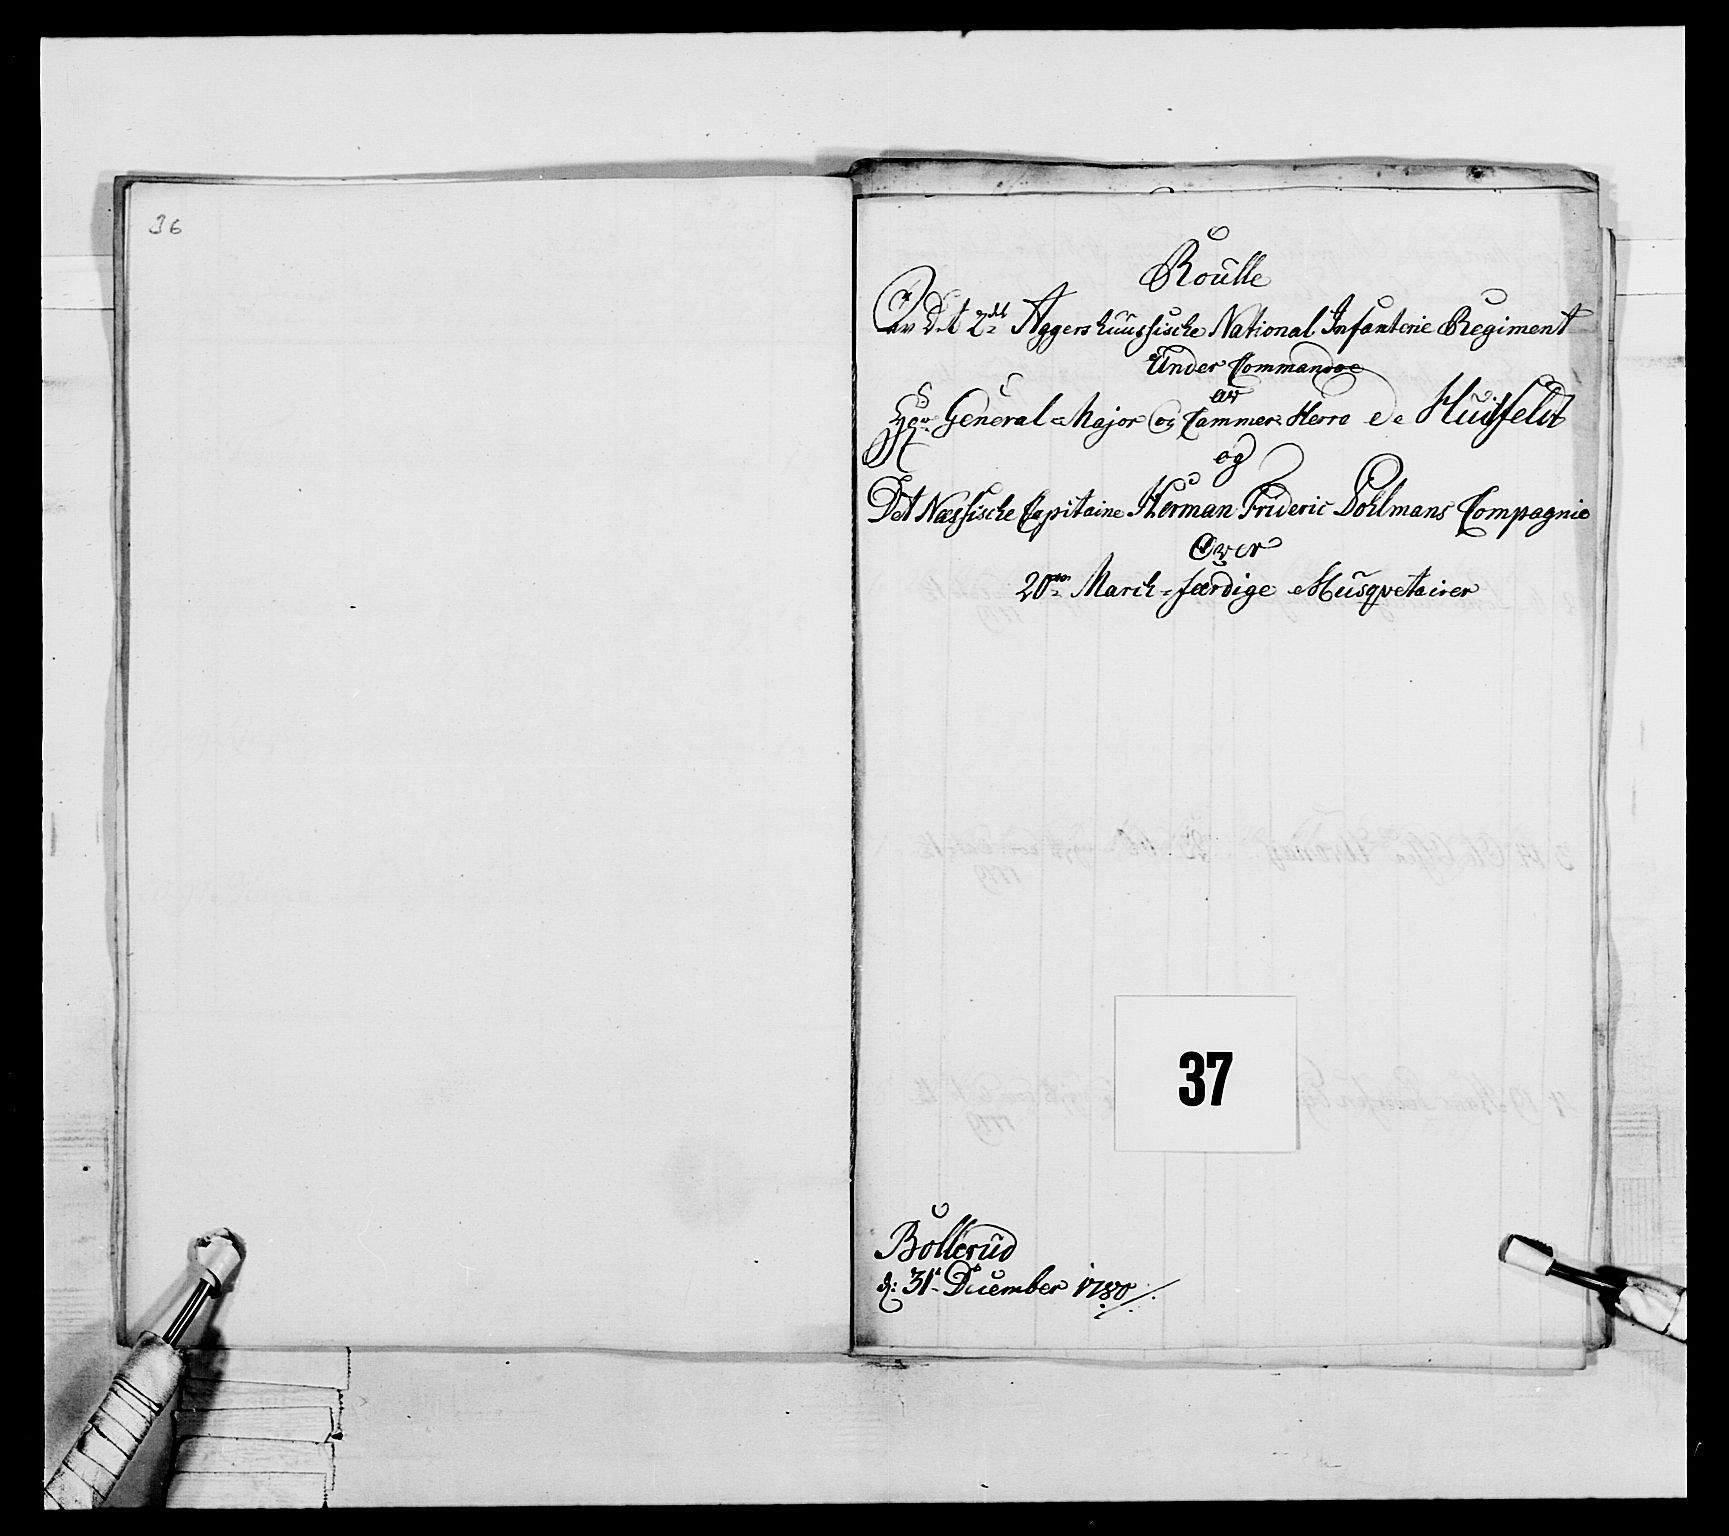 36
Roulle
Av Det 2det Aggershuusische National Infanterie Regiment
Under Commandoe
av
Hr General-Major og Cammer Herre de Huitfeldt
og
Det Næssische Capitaine Herman Frideric Dohlmans Compagnie
Over
20ve March-færdige Musqvetairer
37
Bollerud
d: 31te December 1780